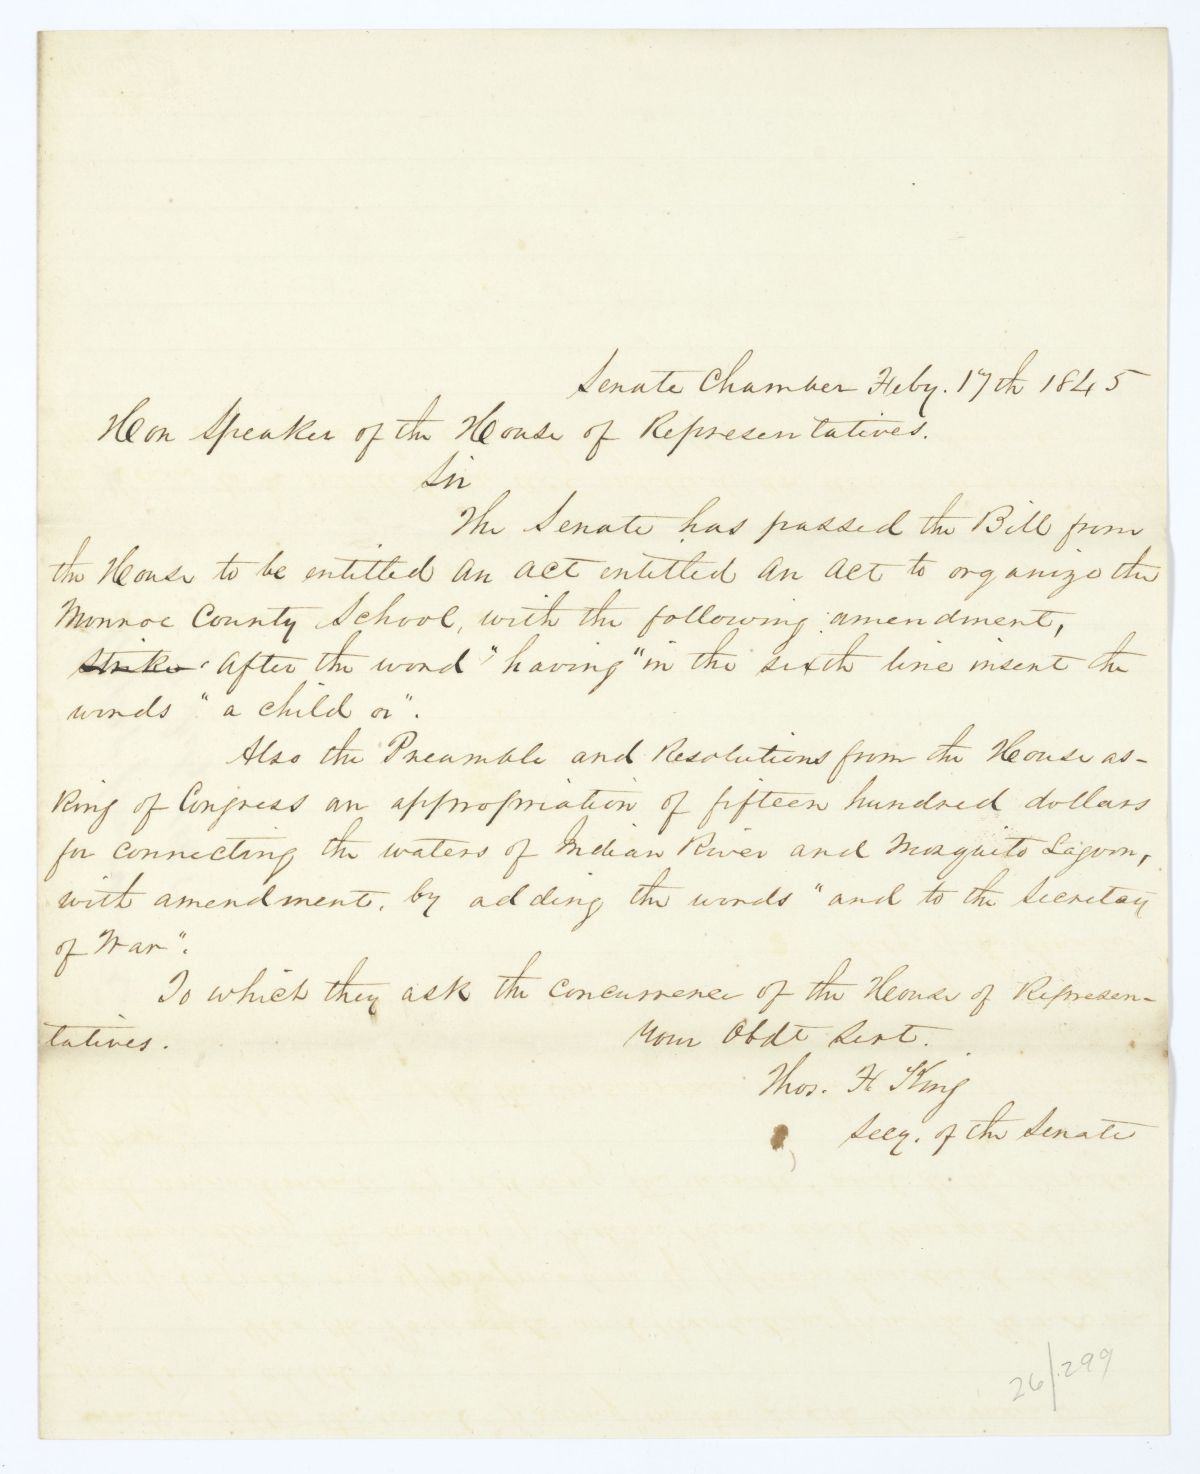 Senate Chamber Feby. 17th 1845
Hon Speaker of the House of Representatives.
Sir
The Senate has passed the Bill from
the House to be entitled An act entitled An Act to organize the
Monroe County School, with the following amendment,
strike After the word "having" in the sixth line insert the
words "a child or".
Also the Preamble and Resolutions from the House as-
king of Congress an appropriation of fifteen hundred dollars
for connecting the waters of Indian River and Mosquito Lagoon,
with amendment, by adding the words "and to the Secretary
of War".
To which they ask the concurrence of the House of Represen-
tatives.
Your Obdt Servt.
Thos. F. King
Secy. of the Senate
26/299